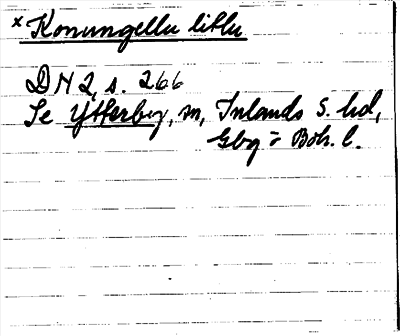 × Konungellu litlu
DN 2, s. 266
Se Ytterby, sn, Inlands S. hd,
Gbg o Boh. l.